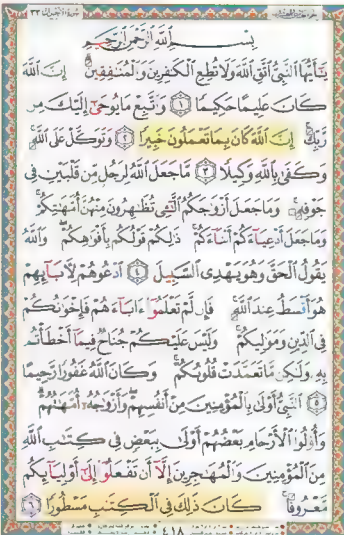 سورة الأحزاب ٣٣
بسم الله الرحمن الرحيم
يَٰٓأَيُّهَا ٱلنَّبِيُّ ٱتَّقِ ٱللَّهَ وَلَا تُطِعِ ٱلْكَٰفِرِينَ وَٱلْمُنَٰفِقِينَ إِنَّ ٱللَّهَ
كَانَ عَلِيمًا حَكِيمًا ١ وَٱتَّبِعْ مَا يُوحَىٰٓ إِلَيْكَ مِن
رَّبِّكَ إِنَّ ٱللَّهَ كَانَ بِمَا تَعْمَلُونَ خَبِيرًا ٢ وَتَوَكَّلْ عَلَى ٱللَّهِ
وَكَفَىٰ بِٱللَّهِ وَكِيلًا ٣ مَّا جَعَلَ ٱللَّهُ لِرَجُلٍ مِّن قَلْبَيْنِ فِى
جَوْفِهِۦ وَمَا جَعَلَ أَزْوَٰجَكُمُ ٱلَّٰٓـِٔى تُظَٰهِرُونَ مِنْهُنَّ أُمَّهَٰتِكُمْ
وَمَا جَعَلَ أَدْعِيَآءَكُمْ أَبْنَآءَكُمْ ذَٰلِكُمْ قَوْلُكُم بِأَفْوَٰهِكُمْ وَٱللَّهُ
يَقُولُ ٱلْحَقَّ وَهُوَ يَهْدِى ٱلسَّبِيلَ ٤ ٱدْعُوهُمْ لِءَابَآئِهِمْ
هُوَ أَقْسَطُ عِندَ ٱللَّهِ فَإِن لَّمْ تَعْلَمُوٓا۟ ءَابَآءَهُمْ فَإِخْوَٰنُكُمْ
فِى ٱلدِّينِ وَمَوَٰلِيكُمْ وَلَيْسَ عَلَيْكُمْ جُنَاحٌ فِيمَآ أَخْطَأْتُم
بِهِۦ وَلَٰكِن مَّا تَعَمَّدَتْ قُلُوبُكُمْ وَكَانَ ٱللَّهُ غَفُورًا رَّحِيمًا
٥ ٱلنَّبِىُّ أَوْلَىٰ بِٱلْمُؤْمِنِينَ مِنْ أَنفُسِهِمْ وَأَزْوَٰجُهُۥٓ أُمَّهَٰتُهُمْ
وَأُو۟لُوا۟ ٱلْأَرْحَامِ بَعْضُهُمْ أَوْلَىٰ بِبَعْضٍ فِى كِتَٰبِ ٱللَّهِ
مِنَ ٱلْمُؤْمِنِينَ وَٱلْمُهَٰجِرِينَ إِلَّآ أَن تَفْعَلُوٓا۟ إِلَىٰٓ أَوْلِيَآئِكُم
مَّعْرُوفًا كَانَ ذَٰلِكَ فِى ٱلْكِتَٰبِ مَسْطُورًا ٦
٤١٨